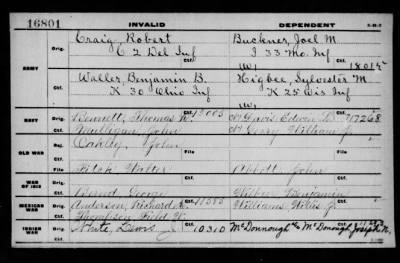 16801 INVALID DEPENDENT
Craig, Robert Buckner, Joel M
Orig. C 2 Del Inf Orig. I 33 Mo. Inf
ARMY Ctf. W, Ctf. 18015
Waller, Benjamin B. Higbee, Sylvester M
Orig. K 30 Ohio Inf Orig. K 25 Wis Inf
Ctf. W,
NAVY Orig. Bennett, Thomas W. Davis Edwin 17268
Ctf. Mulligan John Geary William J.
OLD WAR Rej. Oakley, John
File File
WAR OF 1812 Fitch Walter Abbott John
MEXICAN WAR Orig. Anderson, Richard Orig. Williams J.
Ctf. Thompson, Field W. Ctf.
INDIAN WAR Orig. White, Lewis J 10310 Orig. McDonnough McDonough Joseph N.
Ctf. Ctf.